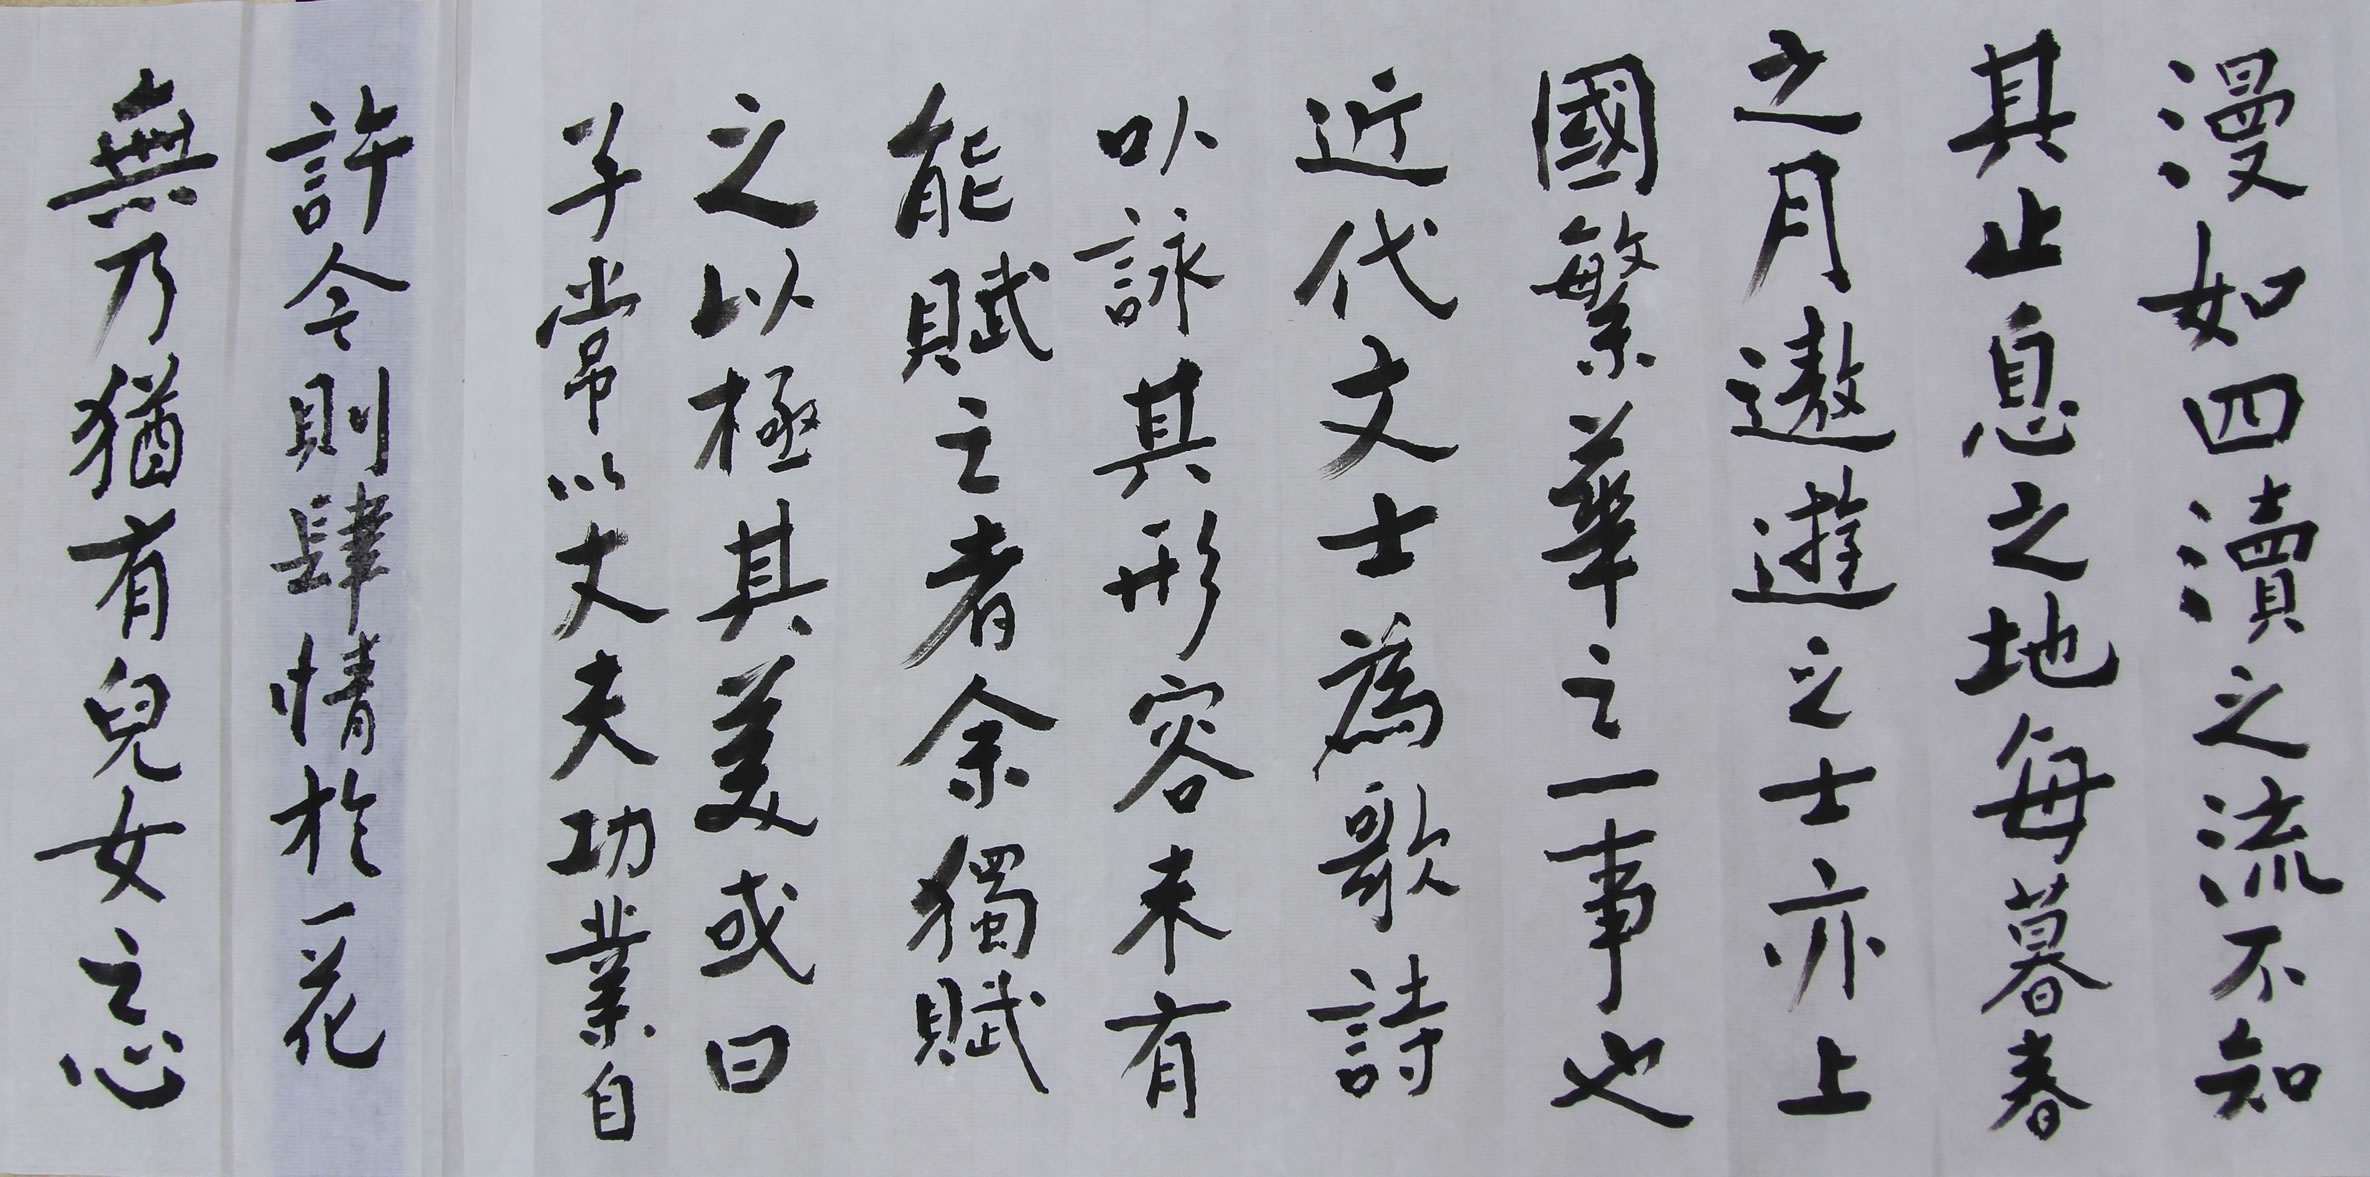 漫如四瀆之流不知
其止息之地每暮春
之月遨遊之士亦上
國繁華之一事也
近代文士為歌詩
以詠其形容未有
能賦之者余獨賦
之以極其美或曰
子常以丈夫功業自
許今則肆情於一花
無乃猶有兒女之心